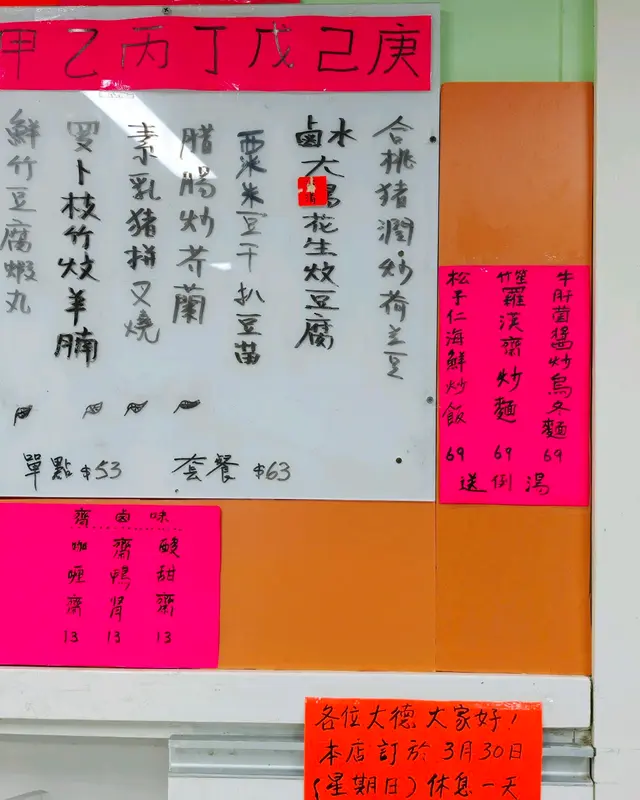 甲乙丙丁戊己庚
合桃猪潤炒荷兰豆
鹵水大腸花生炆豆腐
粟米豆干扒豆苗
腊腸炒芥蘭
素乳猪拼叉燒
罗卜枝竹炆羊腩
鮮竹豆腐蝦丸
單點$53 套餐$63
牛肝菌醬炒烏冬麵 69
竹笙羅漢齋炒麵 69
松子仁海鮮炒飯 69
送例湯
齋鹵味
酸甜齋 13
齋鴨腎 13
咖喱齋 13
各位大德大家好！
本店訂於3月30日
(星期日)休息一天